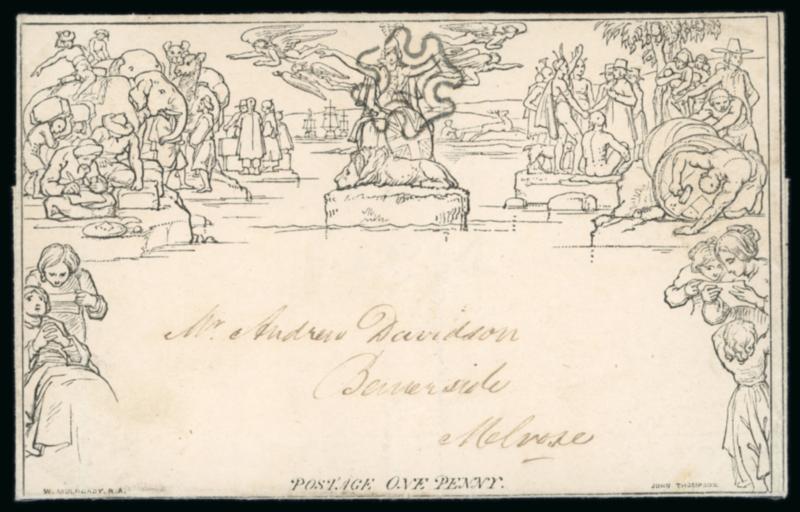 Mr. Andrew Davidson
Bemerside
Melrose
POSTAGE ONE PENNY.
W. MULREADY. R.A.
JOHN THOMPSON